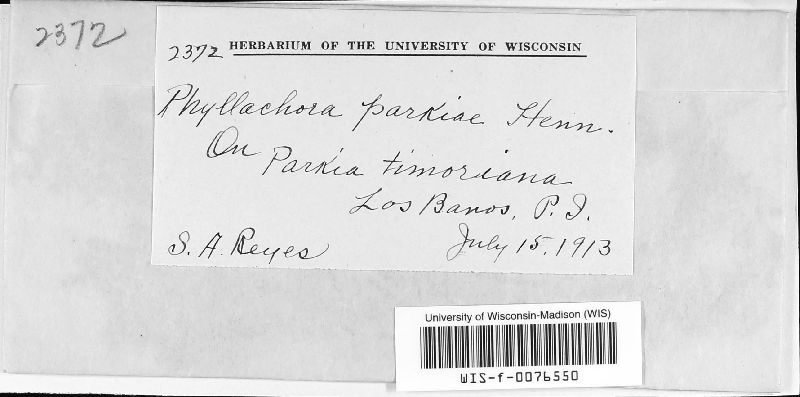 2372
2372 HERBARIUM OF THE UNIVERSITY OF WISCONSIN
Phyllachora parkiae Henn.
On Parkia timoriana
Los Banos, P. I.
S. A. Reyes July 15, 1913
University of Wisconsin-Madison (WIS)
WIS-f-0076550